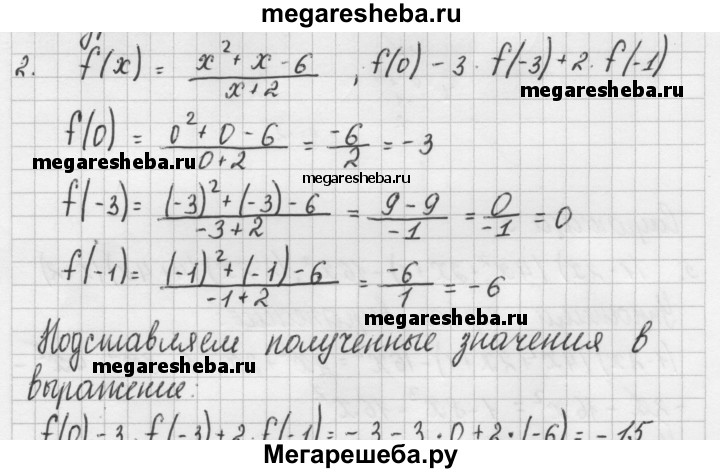 megaresheba.ru
2. f(x) = (x² + x - 6)/(x + 2) , f(0) - 3 · f(-3) + 2 · f(-1)
megaresheba.ru
f(0) = (0² + 0 - 6)/(0 + 2) = -6/2 = -3
megaresheba.ru
megaresheba.ru
f(-3) = ((-3)² + (-3) - 6)/(-3 + 2) = (9 - 9)/(-1) = 0/(-1) = 0
f(-1) = ((-1)² + (-1) - 6)/(-1 + 2) = -6/1 = -6
megaresheba.ru
Подставляем полученные значения в
megaresheba.ru
выражение:
f(0) - 3 · f(-3) + 2 · f(-1) = -3 - 3 · 0 + 2 · (-6) = -15
Мегарешеба.ру